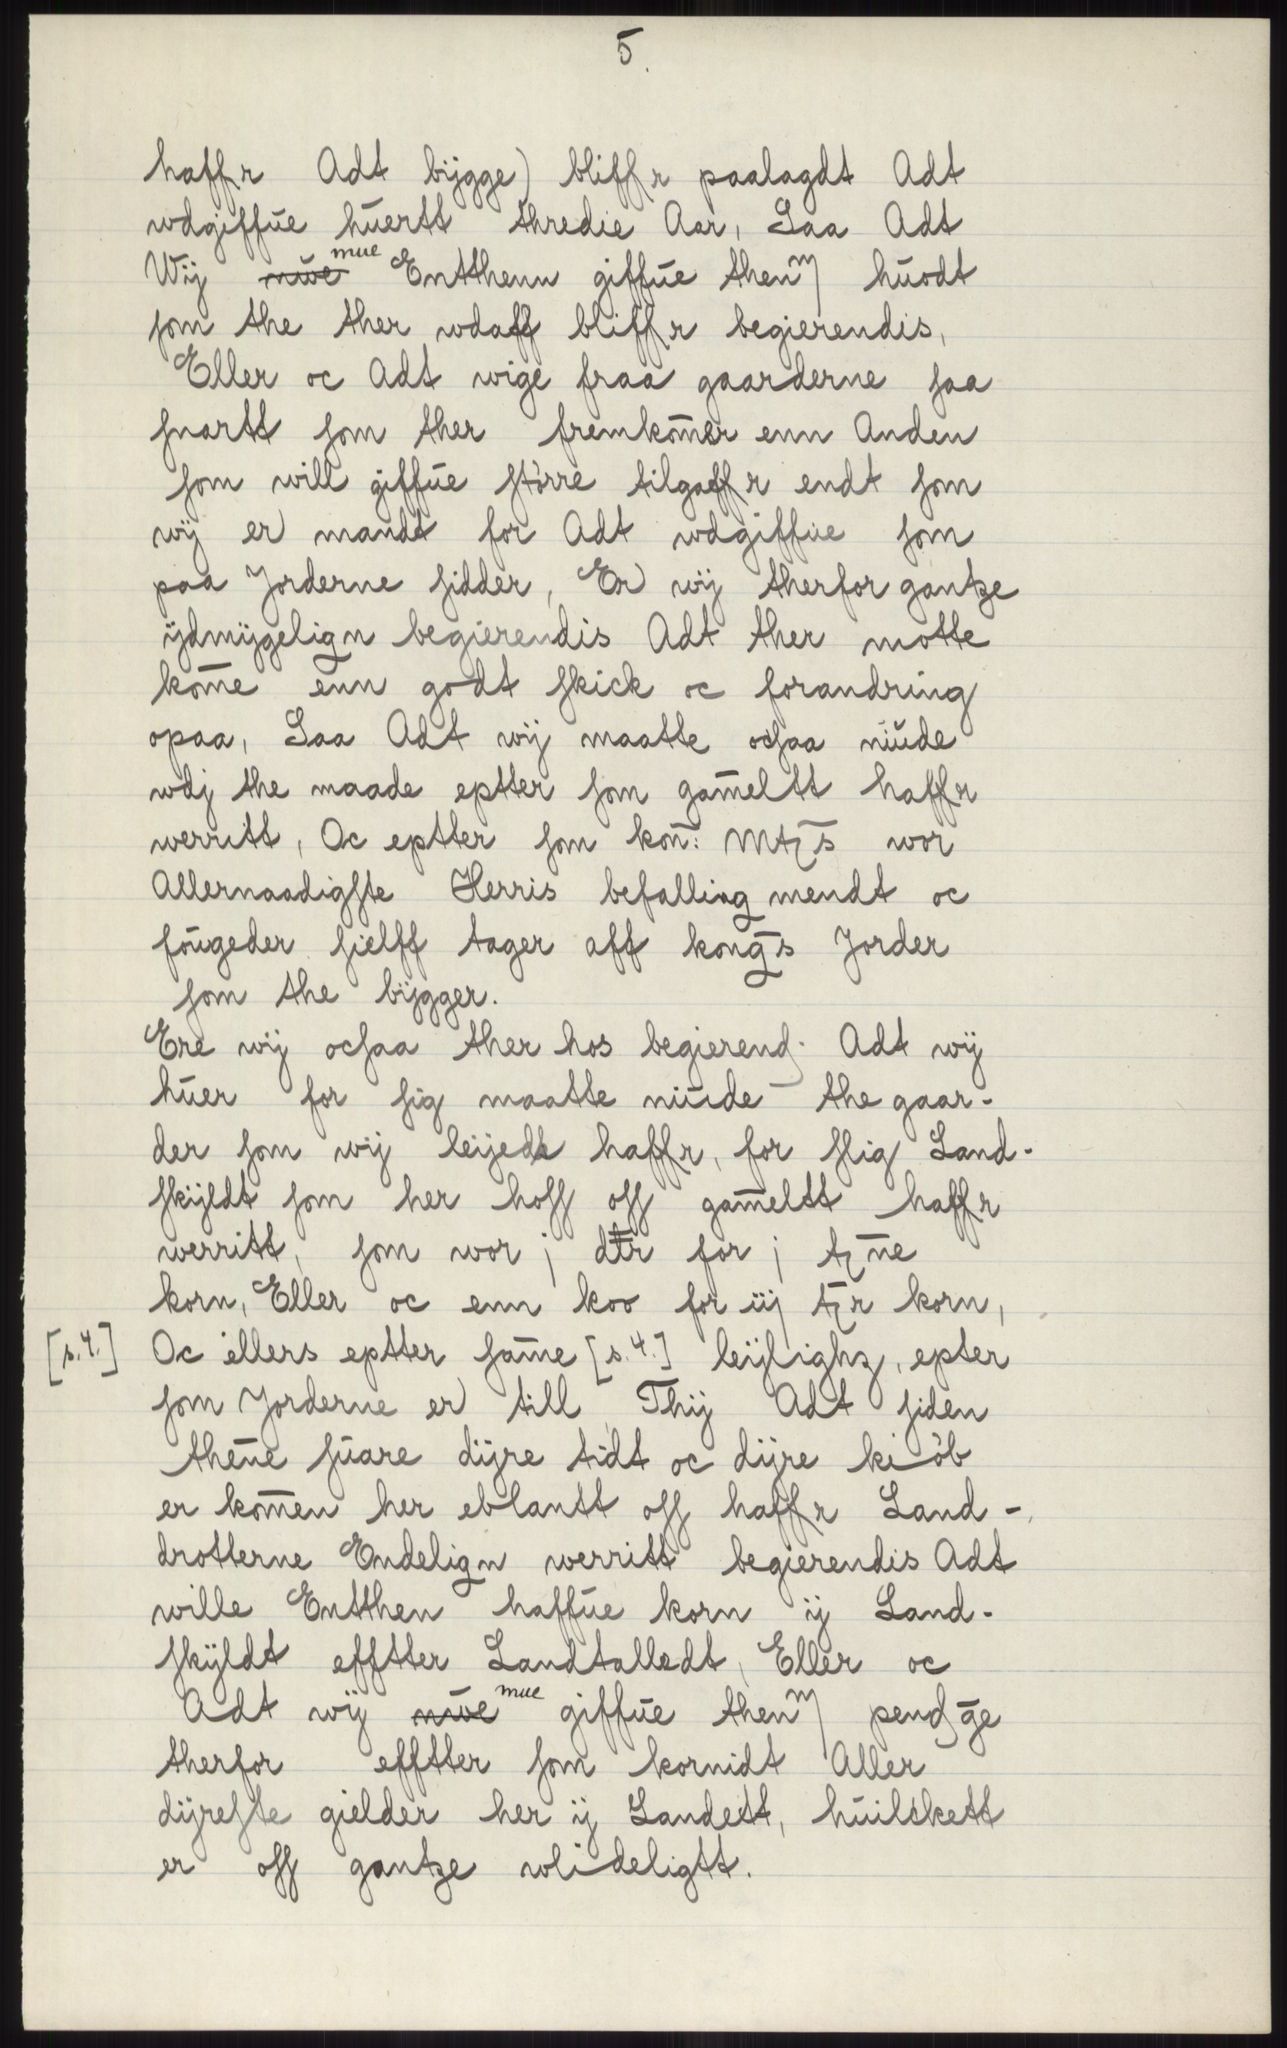 5.
haffr Adt bijgge) bliffr paalagdt Adt
wdgiffúe húertt thredie Aar, Saa Adt
Wij núe mue Entthenn giffúe thenm húodt
som the ther wdaff bliffr begierendis,
Eller oc Adt wige fraa gaarderne saa
snartt som ther fremkom̄er enn Anden
som will giffúe større tilgaffr endt som
wij er mandt for Adt wdgiffúe som
paa Jorderne sidder, Er wij therfor gantze
ijdmijgelign begierendis Adt ther motte
kom̄e enn godt skick oc forandring
opaa, Saa Adt wij maatte ocsaa niúde
wdj the maade eptter som gam̄eltt haffr
werritt, Oc eptter som kon̄: Mtz̄s wor
Allernaadigste Herris befalling mendt oc
foúgeder sielff tager aff kongs̄ Jorder
som the bijgger.
Ere wij ocsaa ther hos begierend. Adt wij
húer for sig maatte niúde the gaar-
der som wij leijede haffr, for slig Land-
skijldt som her hoss oss gam̄eltt haffr
werritt, som wor j dtr for j tz̄ne
korn, Eller oc enn koo for iij tz̄r korn,
[s.4.] Oc ellers eptter sam̄e [s.4.] leijlighz, epter
som Jorderne er till Thij Adt siden
then̄e súare dijre tidt oc dijre kiøb
er kom̄en her eblantt oss haffr Land-
drotterne Endelign werritt begierendis Adt
wille Entthen haffúe korn ij Land-
skijldt efftter Landtalledt, Eller oc
Adt wij núe mue giffúe thenm pendḡe
therfor efftter som kornidt Aller
dijreste gielder her ij Landett, húilckett
er oss gantze wlideligtt.